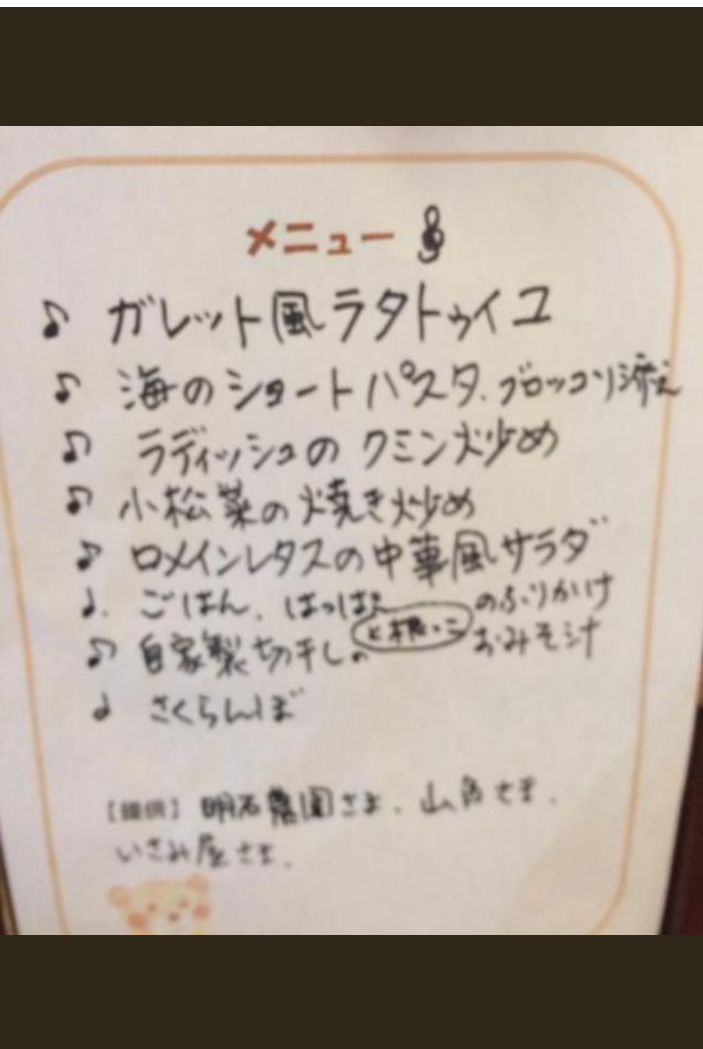 メニュー
ガレット風ラタトゥイユ
海のショートパスタ、ブロッコリ添え
ラディッシュのクミン炒め
小松菜の焼き炒め
ロメインレタスの中華風サラダ
ごはん、はっぱと根っこのふりかけ
自家製切干しのおみそ汁
さくらんぼ
【提供】明石農園さま、山角さま、
いさみ屋さま、